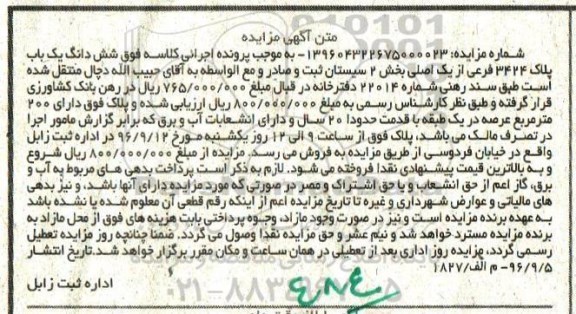 متن آگهی مزایده
شماره مزایده: ۱۳۹۶۰۴۳۲۲۶۷۵۰۰۰۰۲۳- به موجب پرونده اجرائی کلاسه فوق شش دانگ یک باب
پلاک ۳۴۲۴ فرعی از یک اصلی بخش ۲ سیستان ثبت و صادر و مع الواسطه به آقای حبیب الله دچال منتقل شده
است طبق سند رهنی شماره ۲۲۰۱۴ دفترخانه در قبال مبلغ ۷۶۵/۰۰۰/۰۰۰ ریال در رهن بانک کشاورزی
قرار گرفته و طبق نظر کارشناس رسمی به مبلغ ۸۰۰/۰۰۰/۰۰۰ ریال ارزیابی شده و پلاک فوق دارای ۲۰۰
مترمربع عرصه در یک طبقه با قدمت حدودا ۲۰ سال و دارای انشعابات آب و برق که برابر گزارش مامور اجرا
در تصرف مالک می باشد، پلاک فوق از ساعت ۹ الی ۱۲ روز یکشنبه مورخ ۹۶/۹/۱۲ در اداره ثبت زابل
واقع در خیابان فردوسی از طریق مزایده به فروش می رسد. مزایده از مبلغ ۸۰۰/۰۰۰/۰۰۰ ریال شروع
و به بالاترین قیمت پیشنهادی نقدا فروخته می شود. لازم به ذکر است پرداخت بدهی های مربوط به آب و
برق، گاز اعم از حق انشعاب و یا حق اشتراک و مصرف در صورتی که مورد مزایده دارای آنها باشد، و نیز بدهی
های مالیاتی و عوارض شهرداری و غیره تا تاریخ مزایده اعم از اینکه رقم قطعی آن معلوم شده یا نشده باشد
به عهده برنده مزایده است و نیز در صورت وجود مازاد، وجوه پرداختی بابت هزینه های فوق از محل مازاد به
برنده مزایده مسترد خواهد شد و نیم عشر و حق مزایده نقدا وصول می گردد. ضمنا چنانچه روز مزایده تعطیل
رسمی گردد، مزایده روز اداری بعد از تعطیلی در همان ساعت و مکان مقرر برگزار خواهد شد.تاریخ انتشار
۹۶/۹/۵- م الف/۱۸۲۷
اداره ثبت زابل